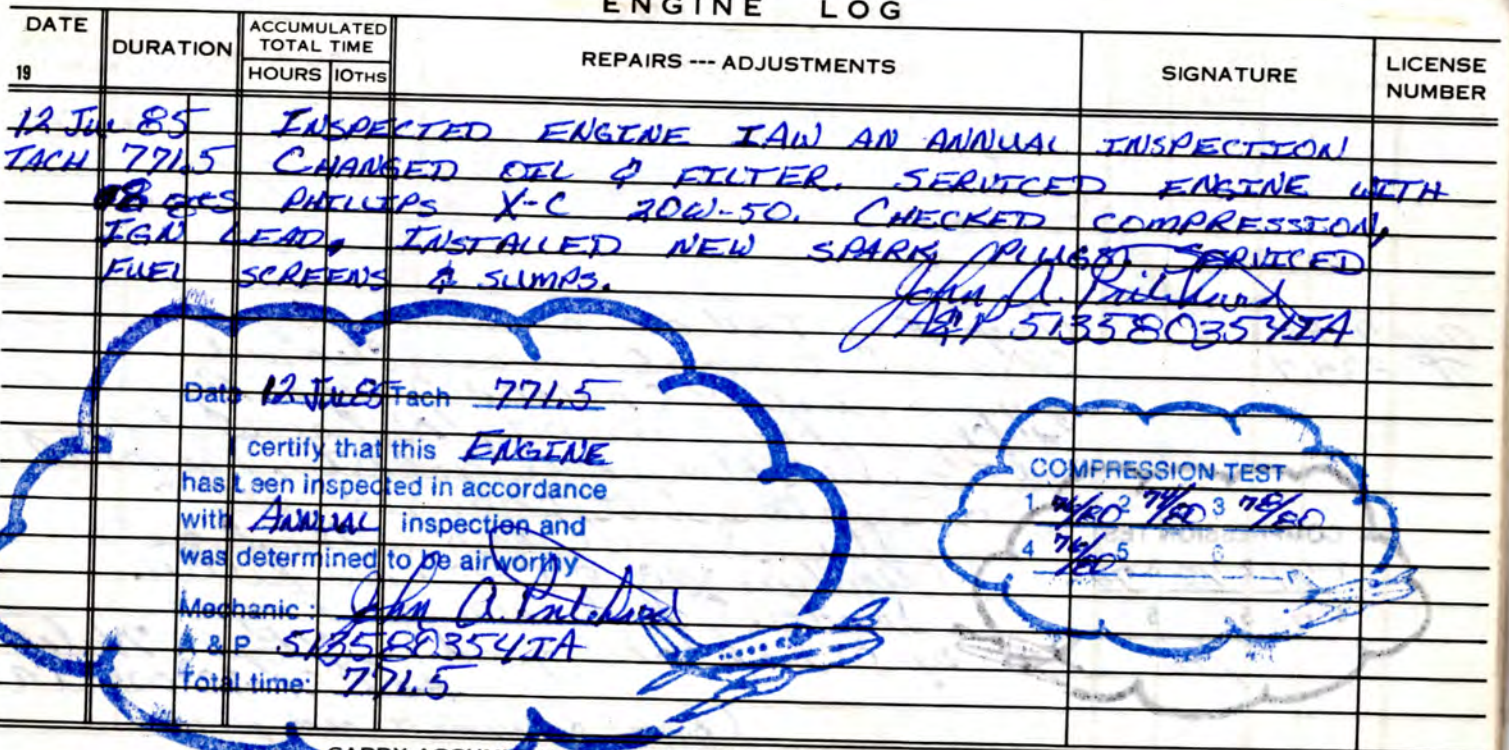 ENGINE LOG
DATE
19
DURATION
ACCUMULATED TOTAL TIME
HOURS 10THS
REPAIRS --- ADJUSTMENTS
SIGNATURE
LICENSE NUMBER
12 Jul 85 INSPECTED ENGINE IAW AN ANNUAL INSPECTION
TACH 771.5 CHANGED OIL & FILTER. SERVICED ENGINE WITH
8 qts PHILLIPS X-C 20W-50. CHECKED COMPRESSION,
IGN LEAD, INSTALLED NEW SPARK PLUGS. SERVICED
FUEL SCREENS & SUMPS.
John A. Pritchard
A&P 513580354IA
Date 12 Jul 85 Tach 771.5
I certify that this ENGINE
has been inspected in accordance
with ANNUAL inspection and
was determined to be airworthy
Mechanic: John A. Pritchard
A & P 513580354IA
Total time: 771.5
COMPRESSION TEST
1 76/80 2 74/80 3 78/80
4 76/80 5 6